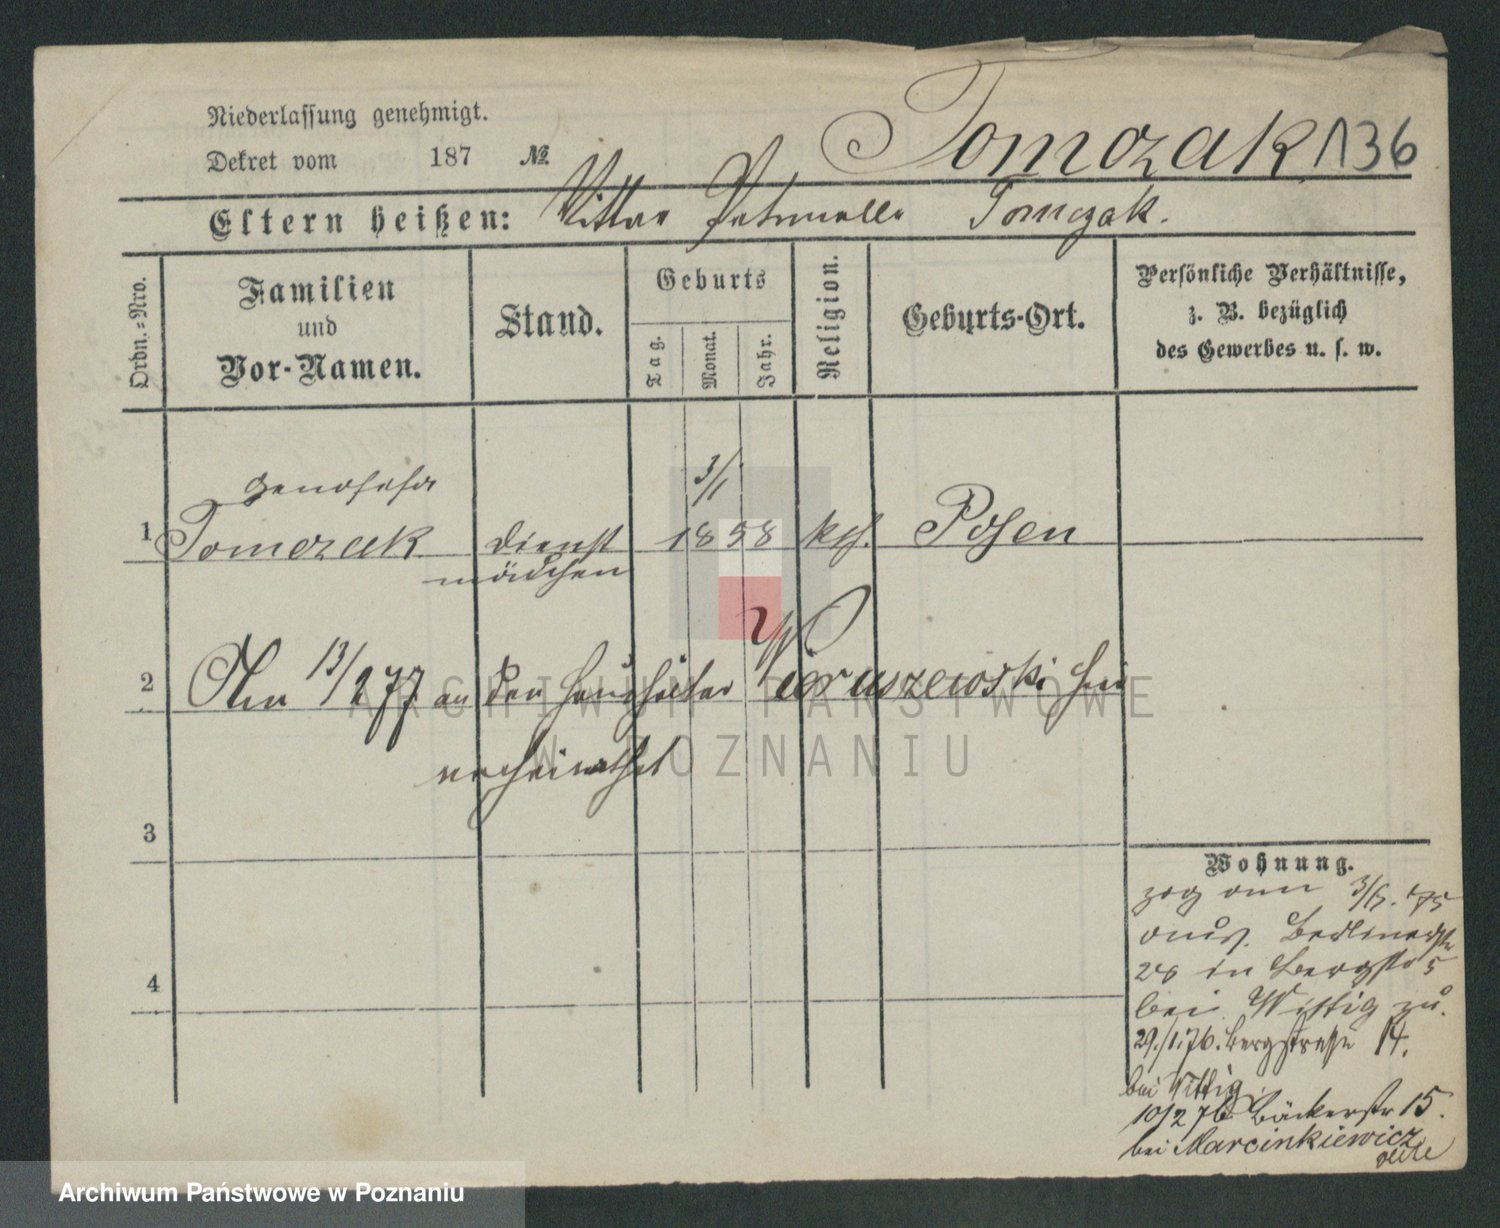 Niederlassung genehmigt.
Dekret vom 187 №
Tomczak 136
Eltern heißen: Petronella Tomczak.
Ordn.=Nro.
Familien
und
Vor-Namen.
Stand.
Geburts
Tag.
Monat.
Jahr.
Religion.
Geburts-Ort.
Persönliche Verhältnisse,
z. B. bezüglich
des Gewerbes u. s. w.
Genofefa 3/1
1 Tomczak Dienst 1858 kth. Posen
mädchen
2 Am 13/2 77 an den Haushälter Pieruszewski hier
verheirathet
3
4
Wohnung.
zog am 3/5. 75
aus. Berlinerstr
28 in Bergstr 5
bei Wittig zu.
29./1.76. Bergstraße 14.
bei Wittig
10/2 76 Bäckerstr 15.
bei Marcinkiewicz
ARCHIWUM PAŃSTWOWE
W POZNANIU
Archiwum Państwowe w Poznaniu